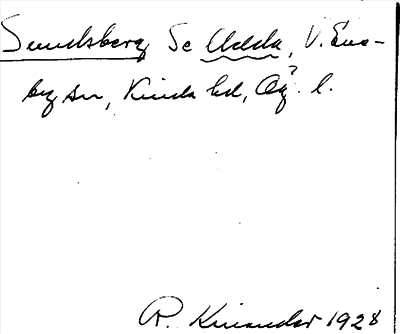 Sundsberg Se Udda, V. Ene-
by sn, Kinda hd, Ög. l.
R. Kinander 1928